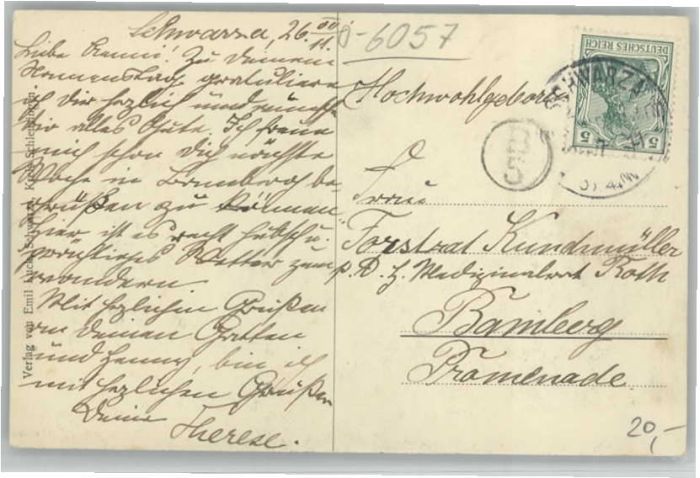 Schwarza, 26. VII. 11.
Liebe Emmi! Zu Deinem
Namenstag gratuliere
ich Dir herzlich und wünsche
Dir alles Gute. Ich freue
mich schon Dich nächste
Woche in Bamberg be-
grüßen zu können
hier ist es recht hübsch u.
prächtiges Wetter zum
wandern.
Mit herzlichen Grüßen
an Deinen Gatten
und Henny, bin ich
mit herzlichen Grüßen
Deine
Therese.
Verlag von Emil
6057
Hochwohlgeboren
Frau
Forstrat Kundmüller
p. A. H. Medizinalrat Roth
Bamberg
Promenade
DEUTSCHES REICH
5 5
SCHWARZA
20,-